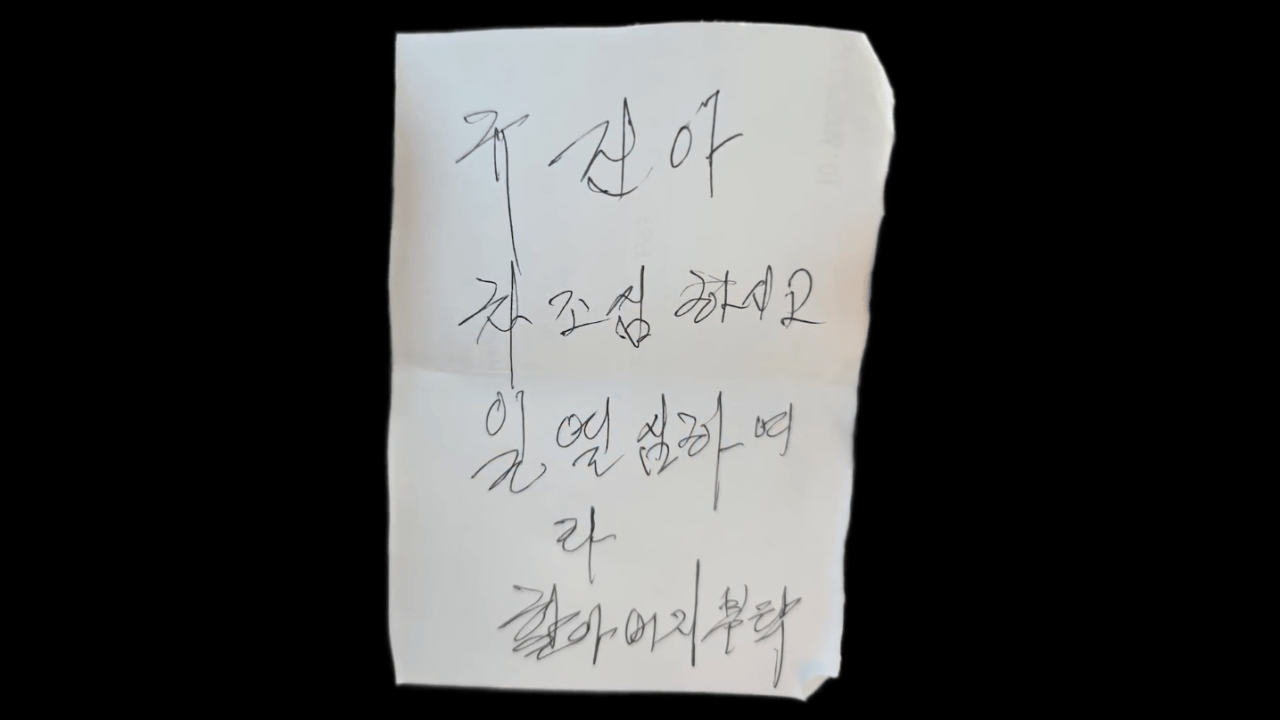 주진아
차 조심 하시고
일 열심하여
라
할아버지 부탁